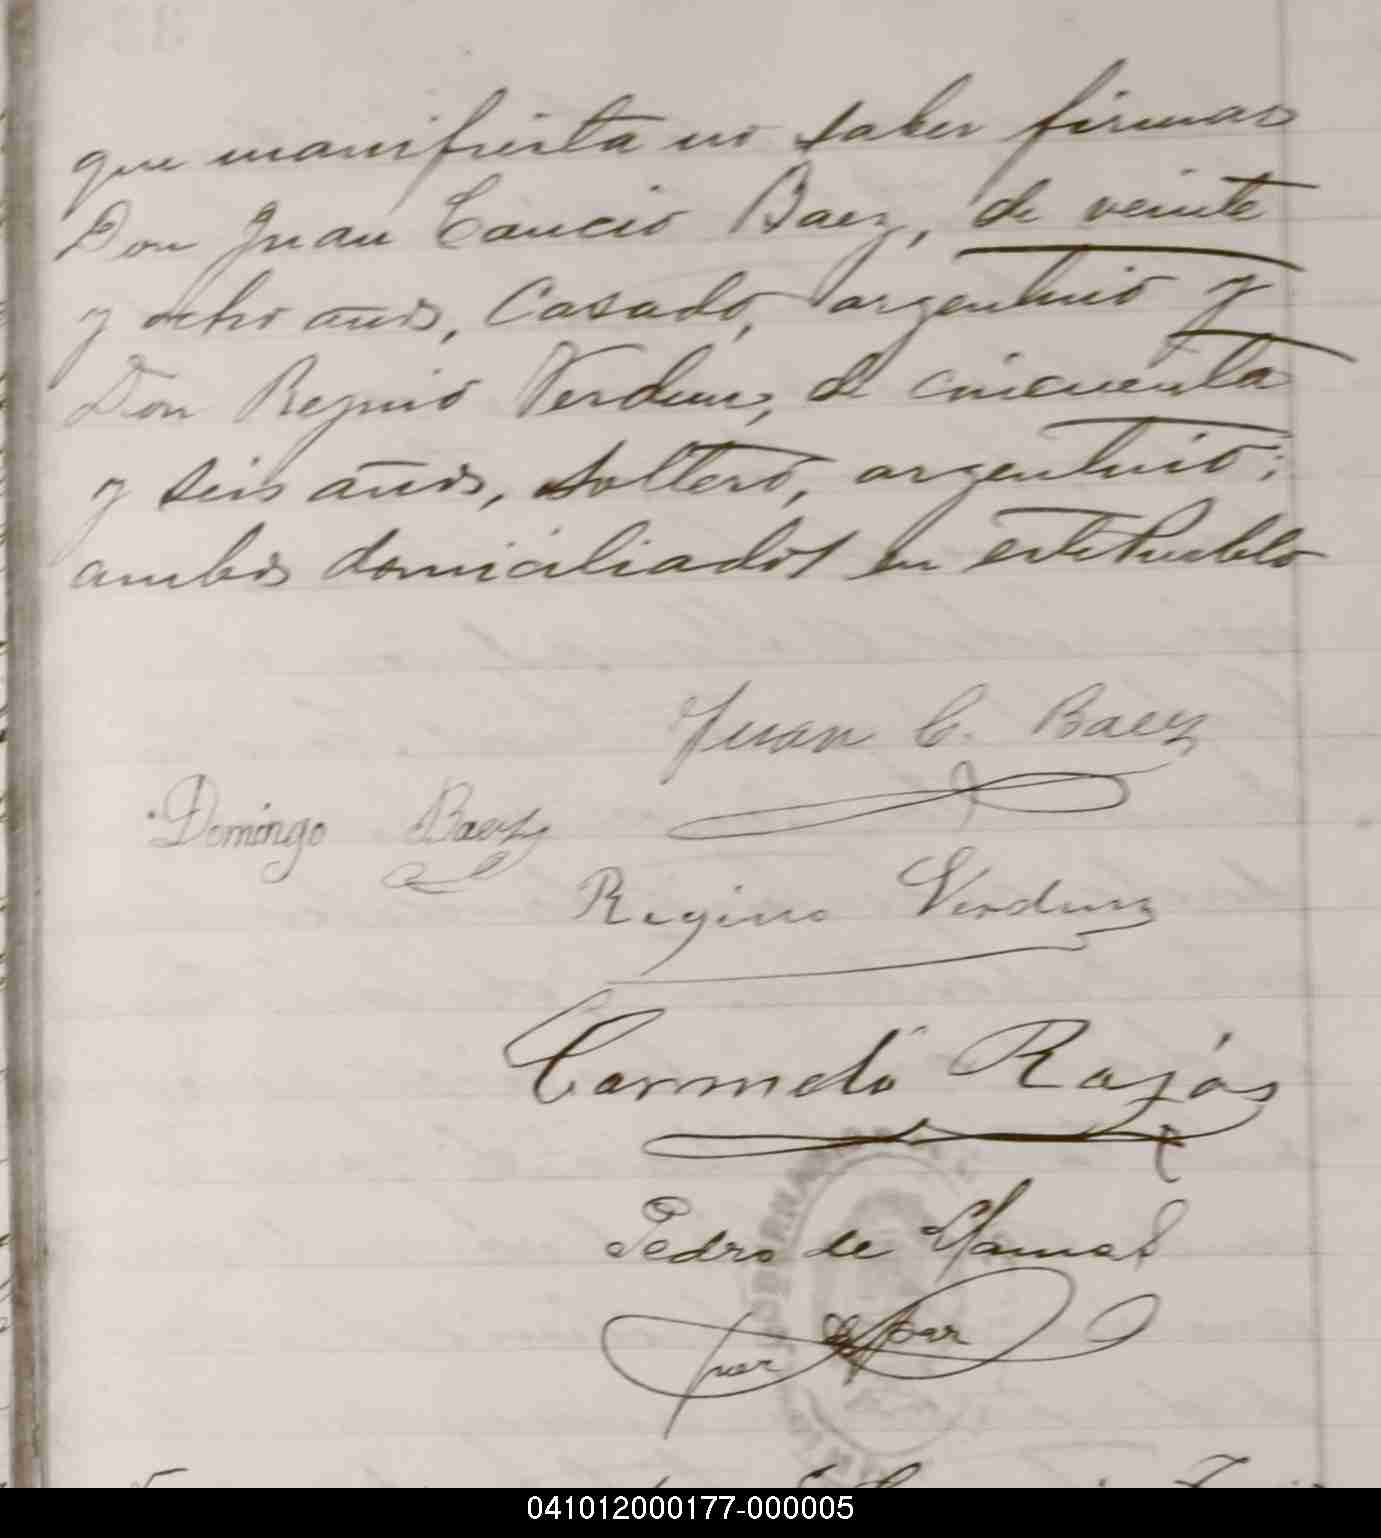 que manifiesta no saber firmar
Don Juan Cancio Baez, de veinte
y ocho años, Casado, argentino y
Don Regino Verdun, de cincuenta
y seis años, soltero, argentino;
ambos domiciliados en este Pueblo
Juan C. Baez
Domingo Baez
Regino Verdun
Carmelo Rajós
Pedro de
Juez de Paz
041012000177-000005